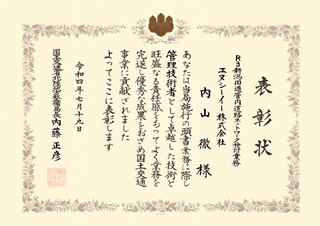 表彰状
R3新潟国道管内道路ネットワーク検討業務
エヌシーイー株式会社
内山 徹 様
あなたは当局施行の頭書業務に際し
管理技術者として卓越した技術と
旺盛なる責任感をもってよく業務を
完遂し優秀な成果をおさめ国土交通
事業に貢献されました
よってここに表彰します
令和四年七月十九日
国土交通省北陸地方整備局長 内藤 正彦